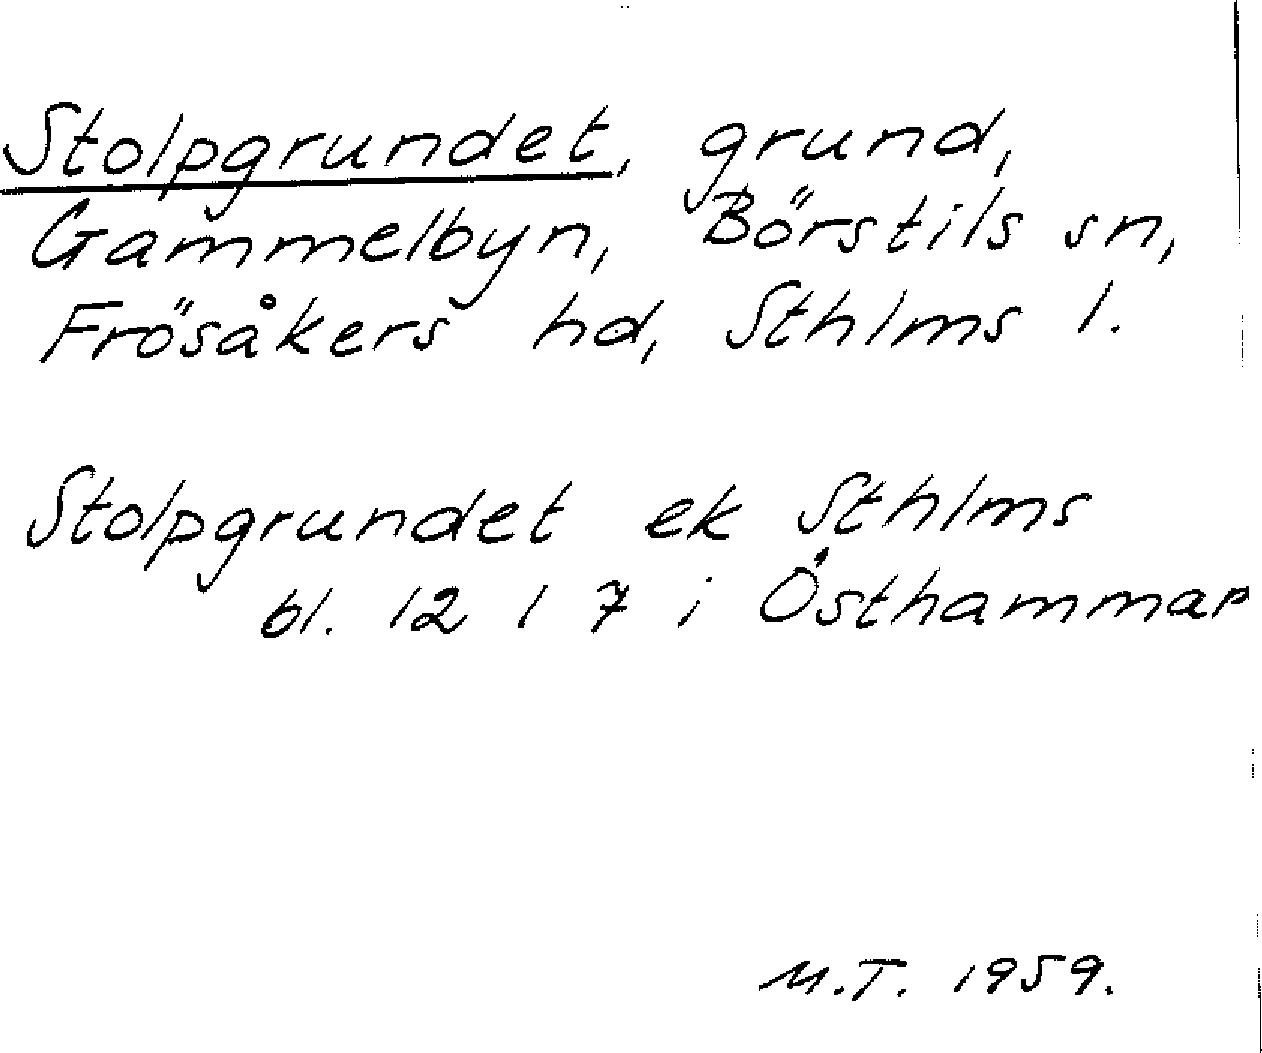 Stolpgrundet, grund,
Gammelbyn, Börstils sn,
Frösåkers hd, Sthlms l.
Stolpgrundet ek Sthlms
bl. 12 I 7 i Östhammar
M.T. 1959.